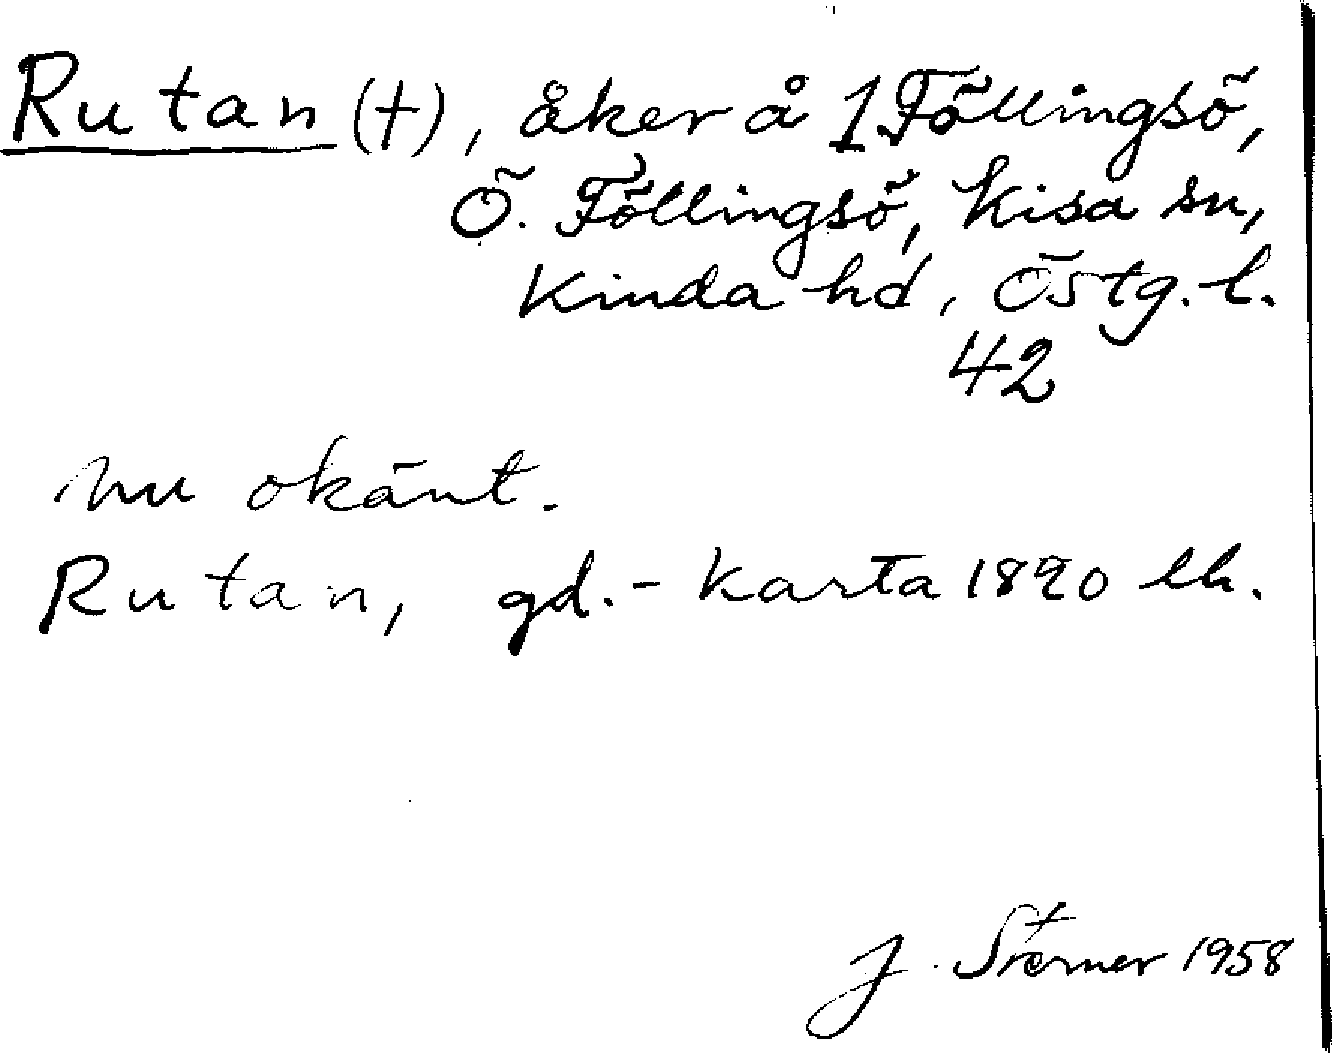 Rutan (†), åker å 1 Föllingsö,
Ö. Föllingsö, Kisa sn,
Kinda hd, Östg. l.
42
nu okänt.
Rutan, gd. - Karta 1820 lh.
J. Sterner 1958